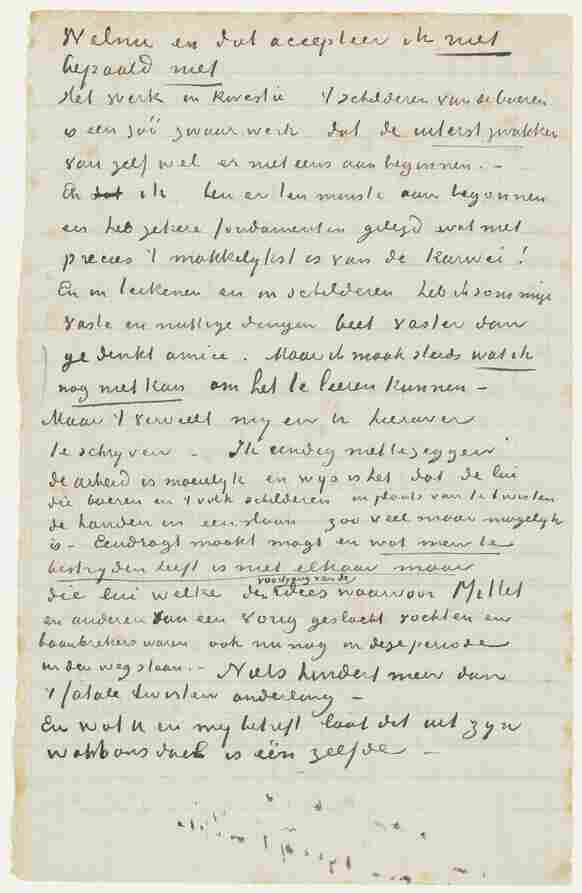 Welnu en dat accepteer ik niet
bepaald niet
Het werk in kwestie 't schilderen van de boeren
is een zóó zwaar werk dat de uiterst zwakken
van zelf wel er niet eens aan beginnen. –
En dat ik ben er ten minste aan begonnen
en heb zekere fondamenten gelegd wat niet
precies 't makkelykst is van de karwei!
En in teekenen en in schilderen heb ik soms myn
vaste en nuttige dingen beet vaster dan
ge denkt amice. Maar ik maak steeds wat ik
nog niet kan om het te leeren kunnen –
Maar 't verveelt my en U hierover
te schryven – Ik eindig met te zeggen
de arbeid is moeielyk en wys is het dat de lui
die boeren en 't volk schilderen in plaats van te twisten
de handen in een slaan zoo veel maar mogelyk
is – Eendragt maakt magt en wat men te
bestryden heeft is niet elkaar maar
die lui welke den voortgang van de idees waarvoor Millet
en anderen van een vorig geslacht vochten en
baanbrekers waren ook nu nog in deze periode
in den weg staan. – Niets hindert meer dan
't fatale twisten onderling –
En wat U en my betreft laat dit uit zyn
want ons doel is één zelfde –